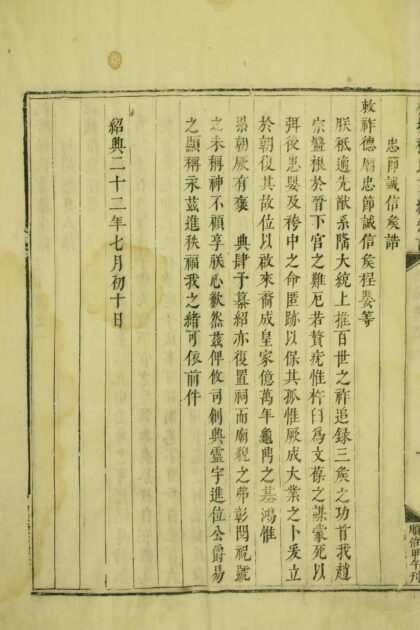 忠節誠信矦誥
敕祚德廟忠節誠信矦程嬰等
朕祗遹先猷系隆大統上推百世之祚追録三矦之功首我趙
宗盤根於晉下官之難厄若贅疣惟杵臼爲文葆之謀蒙死以
弭後患嬰及袴中之命匿跡以保其孤惟厥成大業之卜爰立
於朝復其故位以啟來裔成皇家億萬年龜鼎之基鴻惟
景朝厥有褒　典肆予纂紹亦復置祠而廟貌之弗彰閔祝號
之未稱神不顧享朕心歉然茲俾攸司創興靈宇進位公爵易
之顯稱永茲進秩福我之緒可依前件
紹興二十二年七月初十日
順治甲午刊